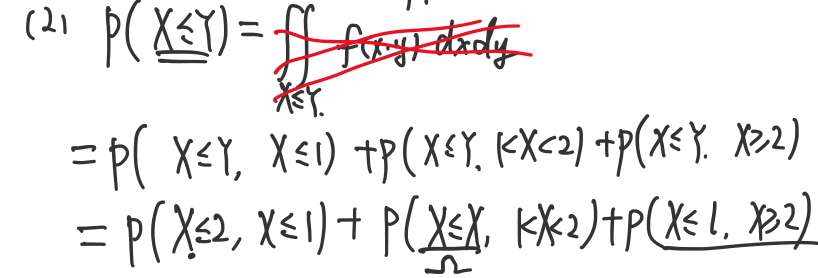 (2) P(X≤Y) = ∬ f(x·y) dxdy
X≤Y.
= P( X≤Y, X≤1) + P(X≤Y, 1<X<2) + P(X≤Y. X≥2)
= P(X≤2, X≤1) + P(X≤X, 1<X<2) + P(X≤1, X≥2)
Ω